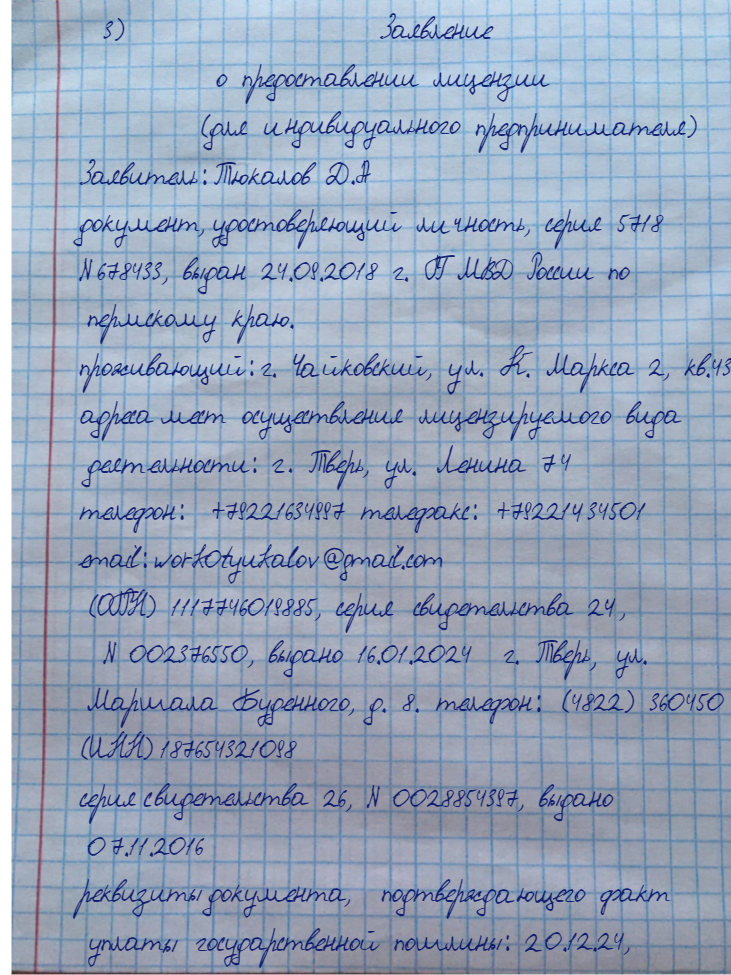 3) Заявление
о предоставлении лицензии
(для индивидуального предпринимателя)
Заявитель: Тюкалов Д.А
документ, удостоверяющий личность, серия 5718
N 678433, выдан 24.09.2018 г. ОП МВД России по
пермскому краю.
проживающий: г. Чайковский, ул. К. Маркса 2, кв.43
адреса мест осуществления лицензируемого вида
деятельности: г. Тверь, ул. Ленина 74
телефон: +79221634997 телефакс: +79221434501
email: work0tyukalov@gmail.com
(ОГРН) 1117746019885, серия свидетельства 24,
N 002376550, выдано 16.01.2024 г. Тверь, ул.
Маршала Буденного, д. 8. телефон: (4822) 360450
(ИНН) 187654321098
серия свидетельства 26, N 0028854397, выдано
07.11.2016
реквизиты документа, подтверждающего факт
уплаты государственной пошлины: 20.12.24,